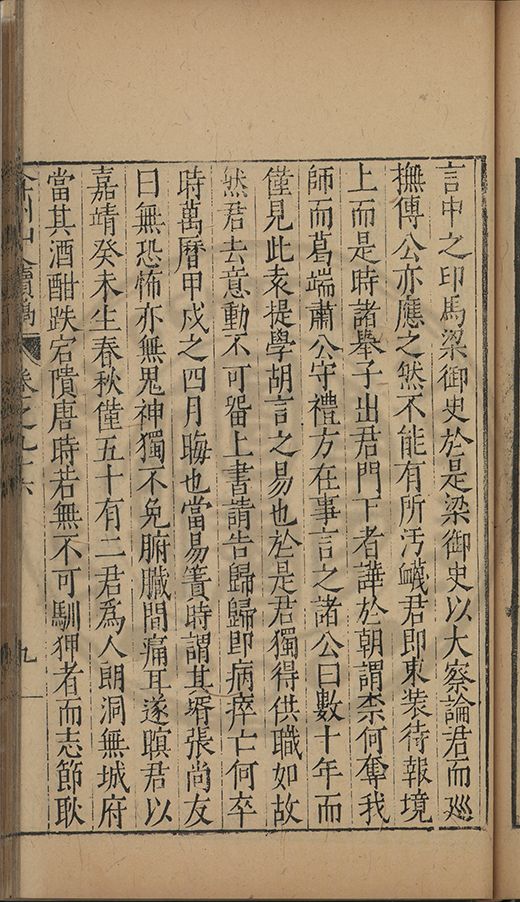 言中之印馬梁御史於是梁御史以大察論君而廵
撫傅公亦應之然不能有所汚衊君即束装待報境
上而是時諸舉子出君門下者譁於朝謂柰何奪我
師而葛端肅公守禮方在事言之諸公曰數十年而
僅見此袁提學胡言之易也於是君獨得供職如故
然君去意動不可畱上書請告歸歸即病瘁亡何卒
時萬曆甲戍之四月晦也當易簀時謂其壻張尚友
曰無恐怖亦無鬼神獨不免腑臟間痛耳遂瞑君以
嘉靖癸未生春秋僅五十有二君爲人朗洞無城府
當其酒酣跌宕隤唐時若無不可馴狎者而志節耿
弇州山人續稿 卷之九十六 九